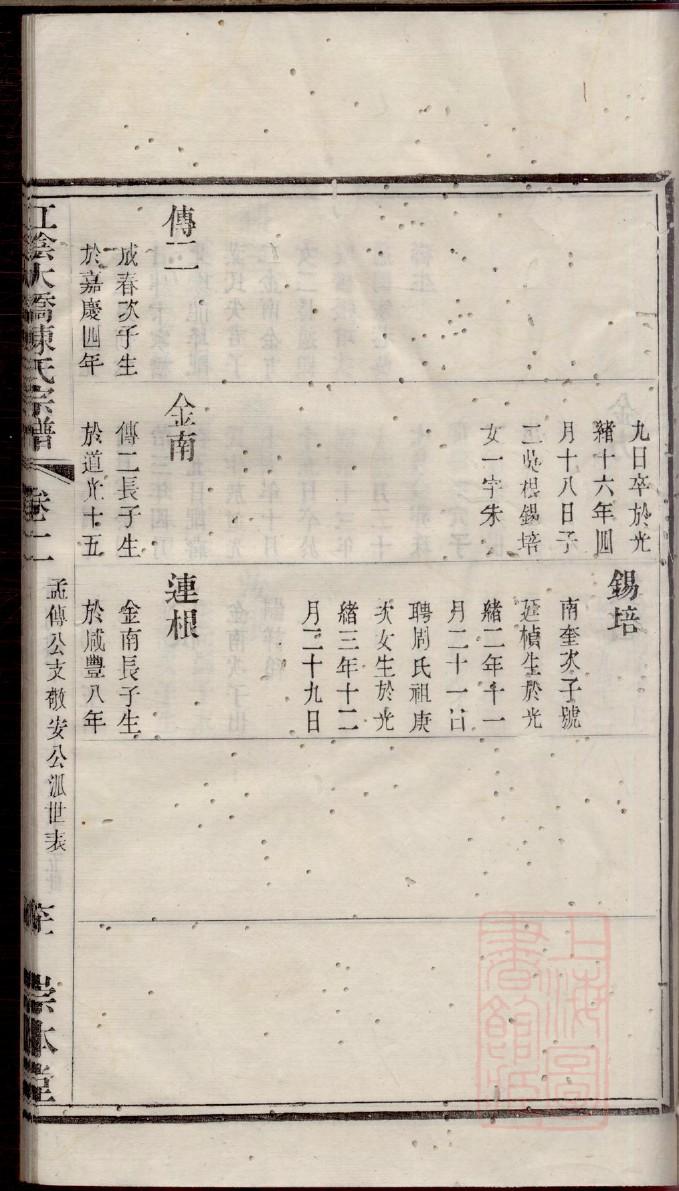 九日卒於光
緒十六年四
月十八日子
二吳根錫培
女一字朱
錫培
南奎次子號
延楨生於光
緒二年十一
月二十一日
聘周氏祖庚
次女生於光
緒三年十二
月二十九日
傳二
成春次子生
於嘉慶四年
金南
傳二長子生
於道光十五
連根
金南長子生
於咸豐八年
江陰大橋陳氏宗譜
卷二
孟傳公支敬安公派世表
崇本堂
上海圖書館藏